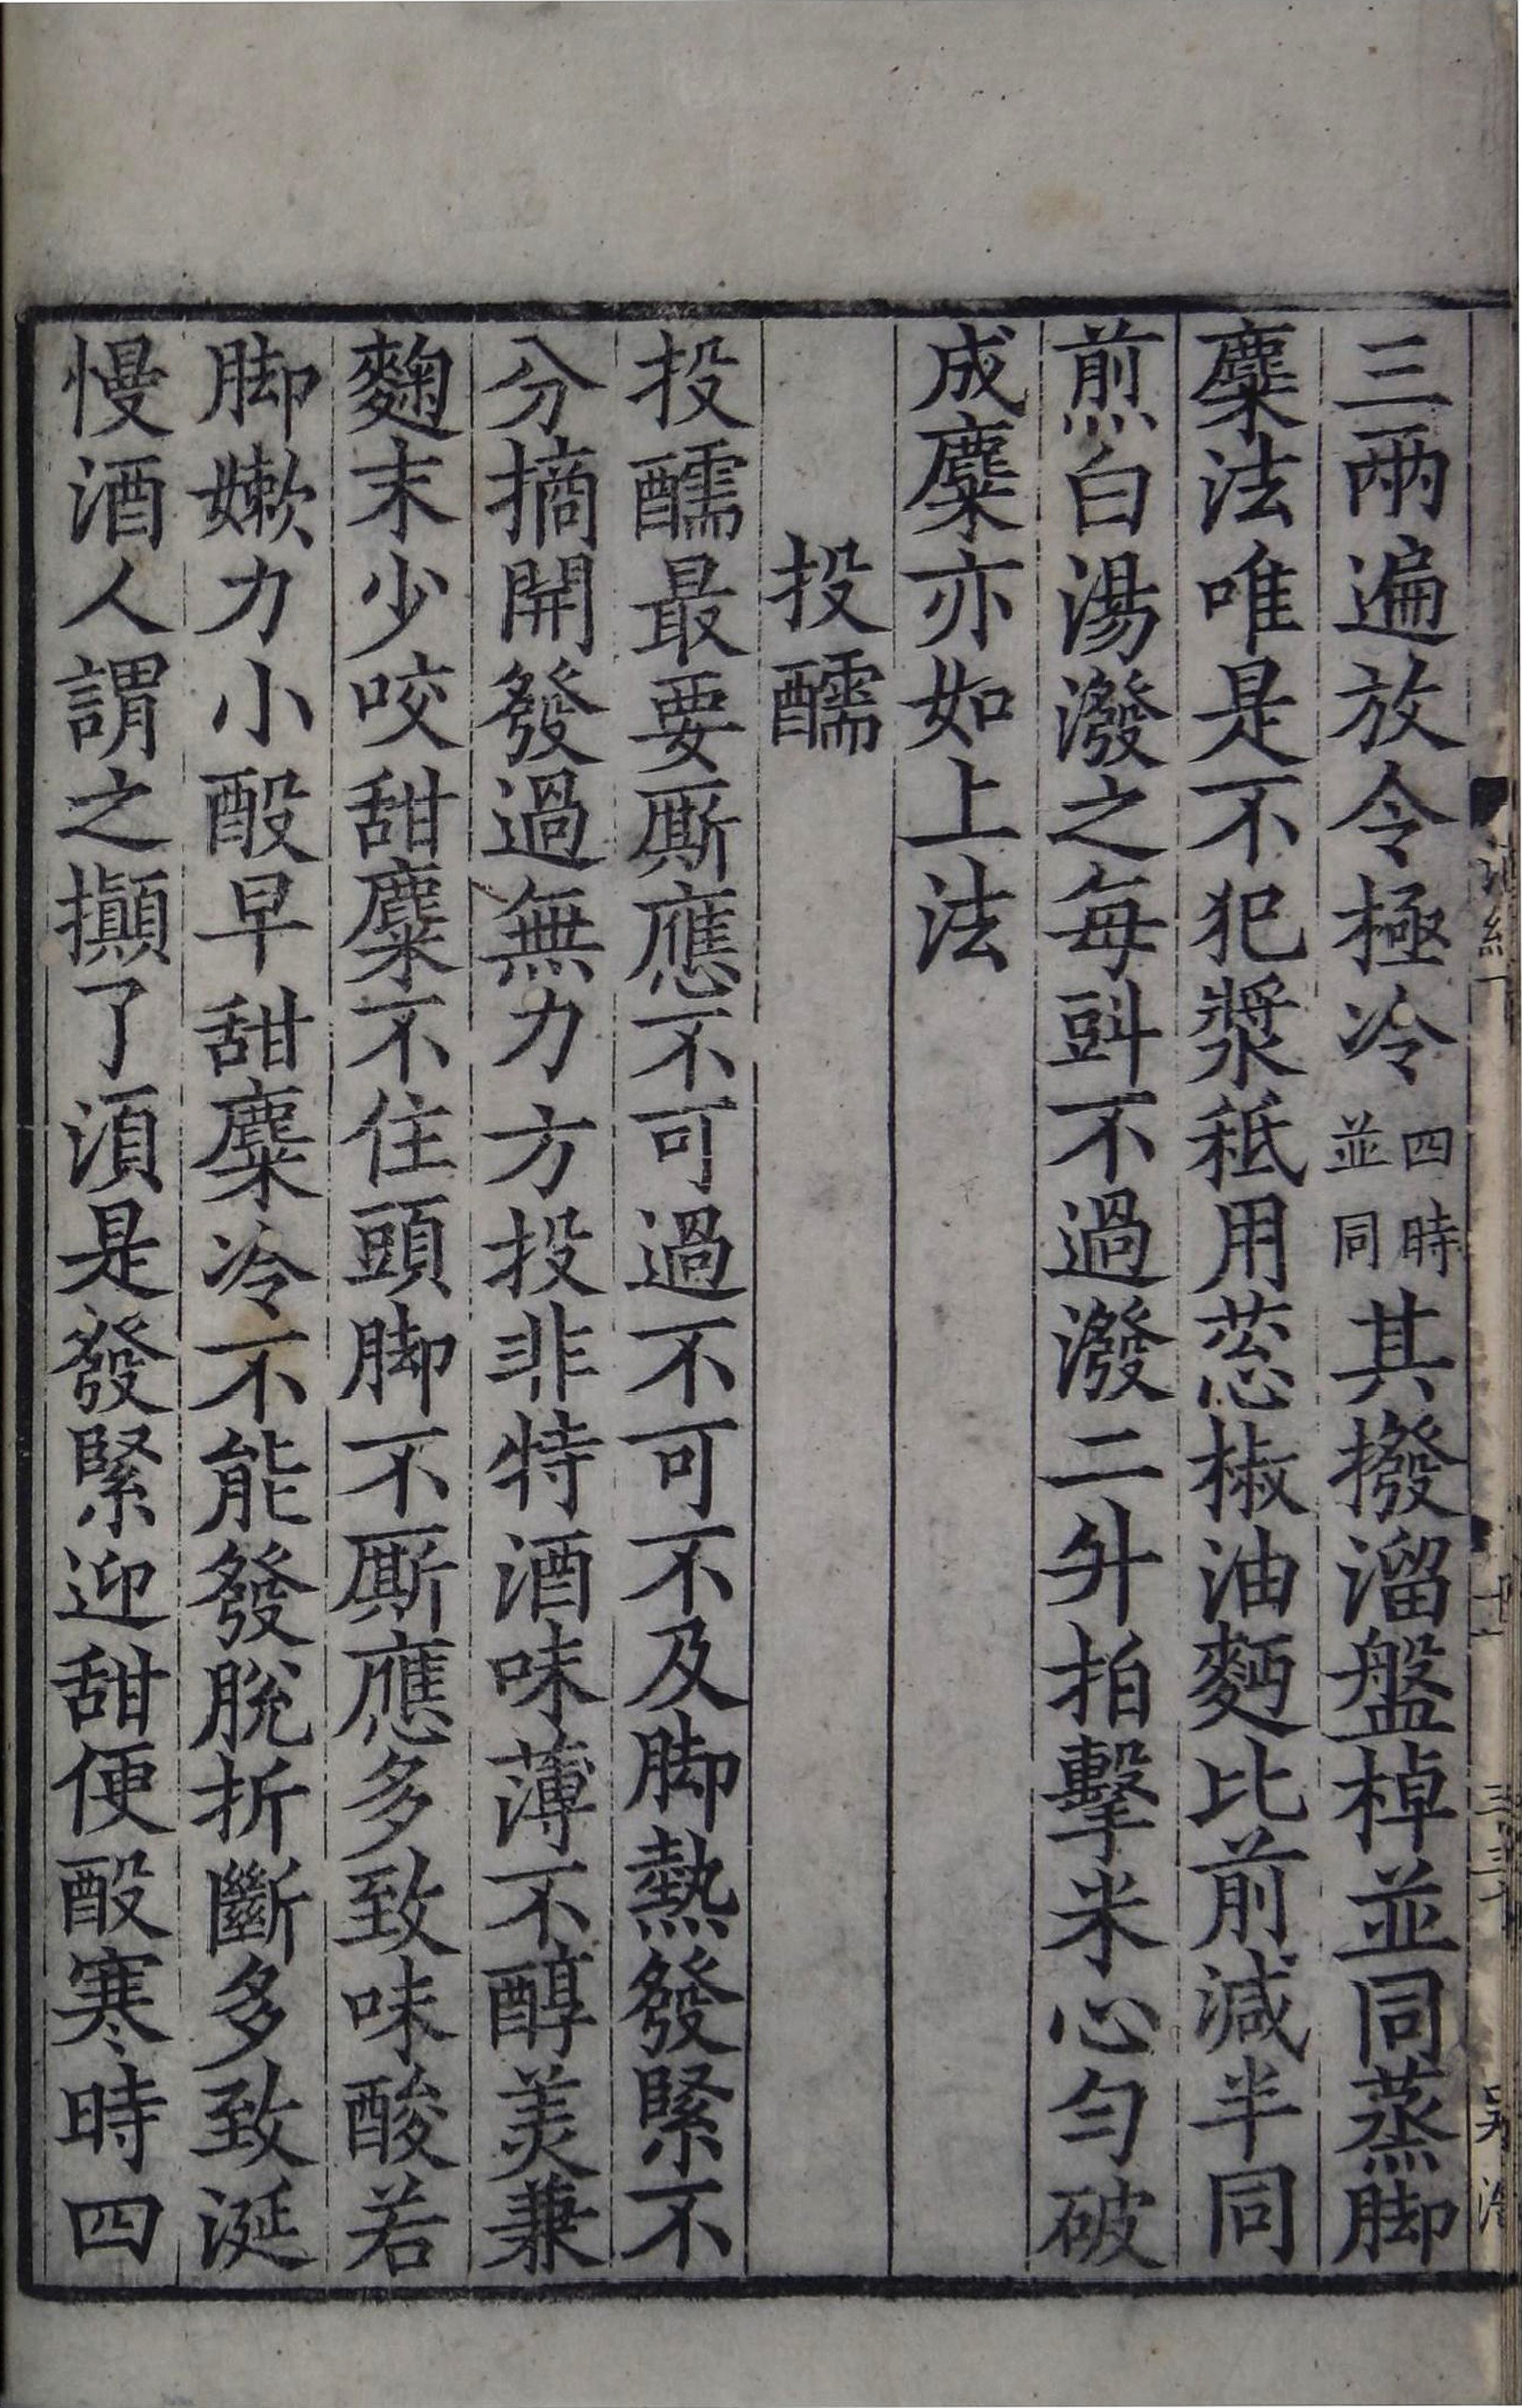 三兩遍放令極冷四時並同其撥溜盤棹並同蒸脚
麋法唯是不犯漿秪用葱椒油麪比前減半同
煎白湯潑之每㪷不過潑二升拍擊米心匀破
成麋亦如上法
投醹
投醹最要厮應不可過不可不及脚熱發緊不
分摘開發過無力方投非特酒味薄不醇美兼
麴末少咬甜麋不住頭脚不厮應多致味酸若
脚嫰力小酘早甜麋冷不能發脫折斷多致涎
慢酒人謂之攧了湏是發緊迎甜便酘寒時四